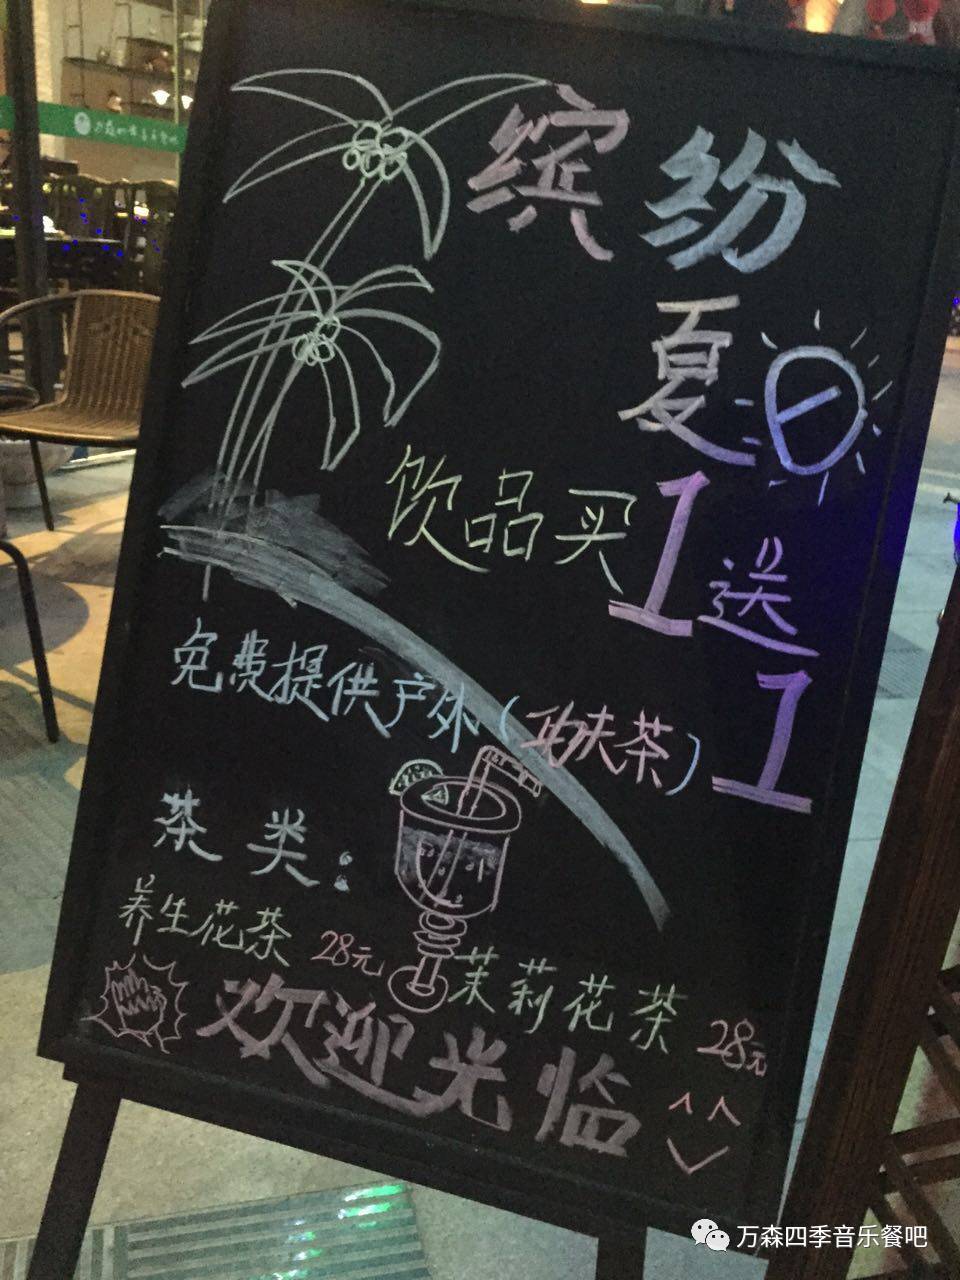 缤纷
夏日
饮品买1送1
免费提供户外(功夫茶)
茶类:
养生花茶 28元
茉莉花茶 28元
欢迎光临
万森四季音乐餐吧